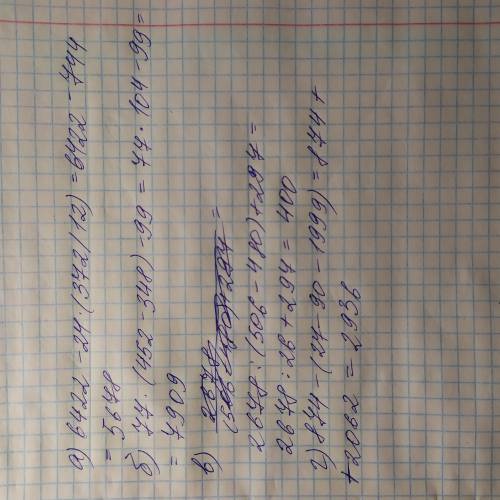 а) 6422 - 24 · (372/12) = 6422 - 744
= 5678
б) 77 · (452 - 348) - 99 = 77 · 104 - 99 =
= 7909
в)
2678 : (506 - 480) + 297 =
2678 : 26 + 297 = 400
г) 874 - (27 - 90 - 1999) = 874 +
+ 2062 = 2936